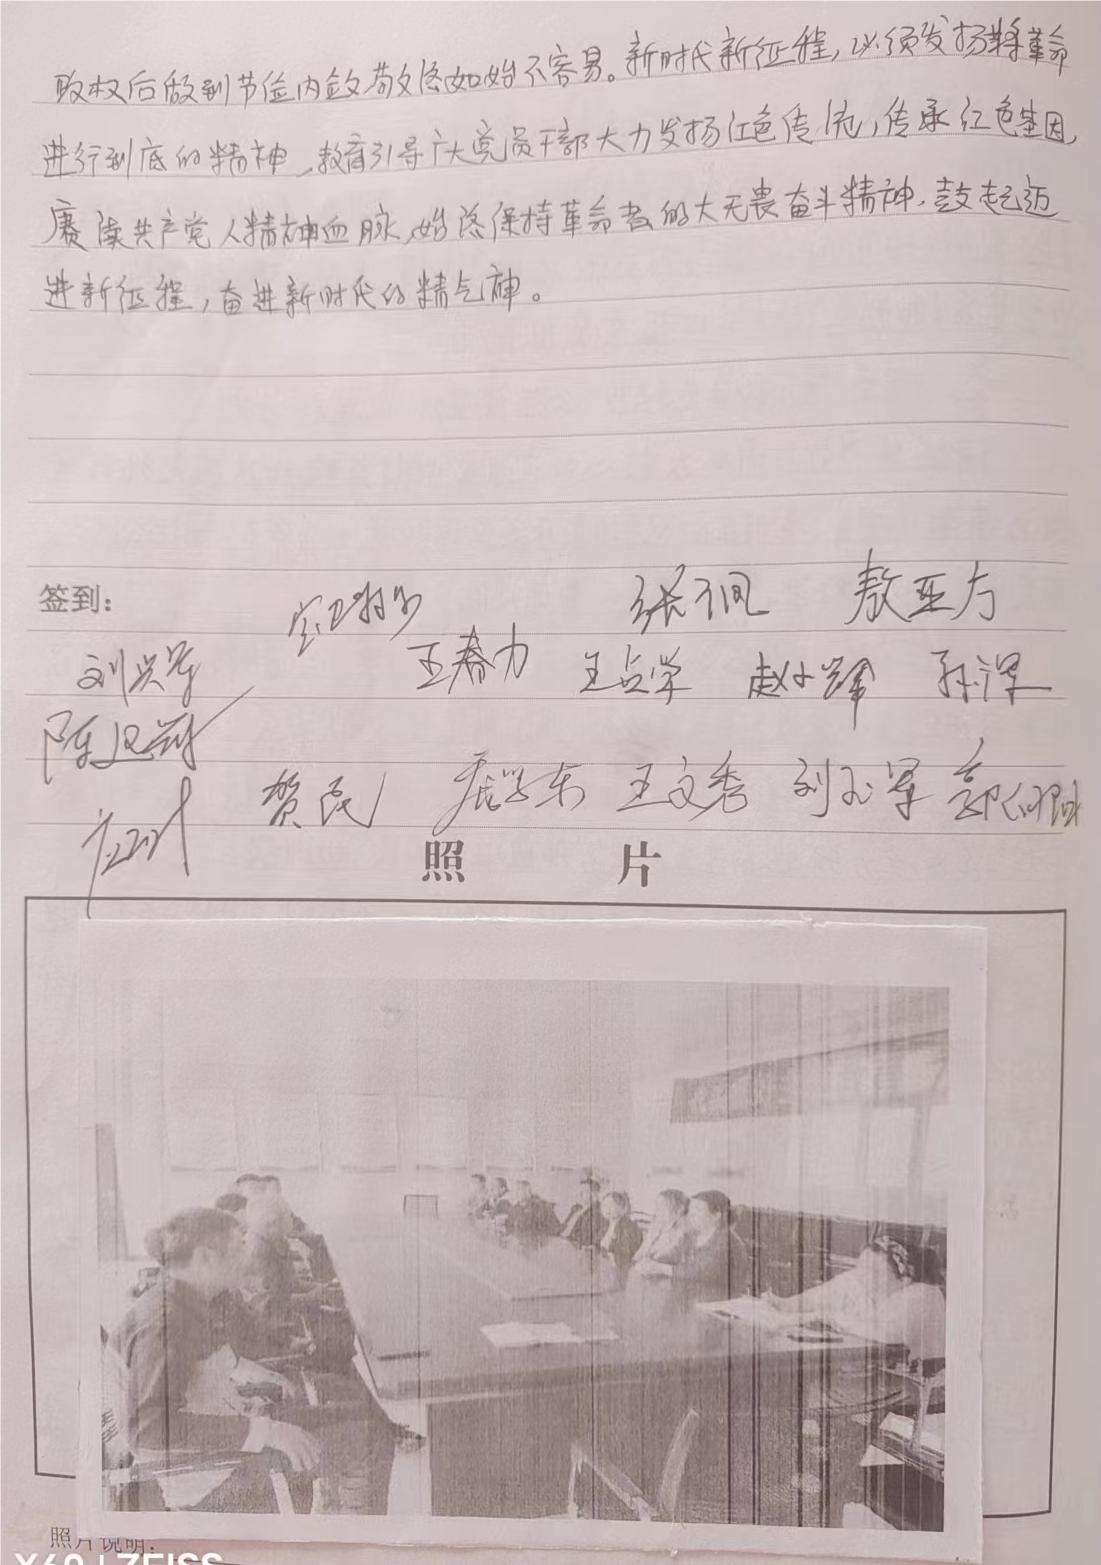 政权后做到节俭内敛敬终如始不容易。新时代新征程，必须发扬将革命
进行到底的精神，教育引导广大党员干部大力发扬红色传统，传承红色基因，
赓续共产党人精神血脉，始终保持革命者的大无畏奋斗精神，鼓起迈
进新征程，奋进新时代的精气神。
签到：
敖亚方
王春力 王占学 赵小辉 孙军
贺民 王文秀 刘玉军
照 片
照片说明：
X60 | ZEISS